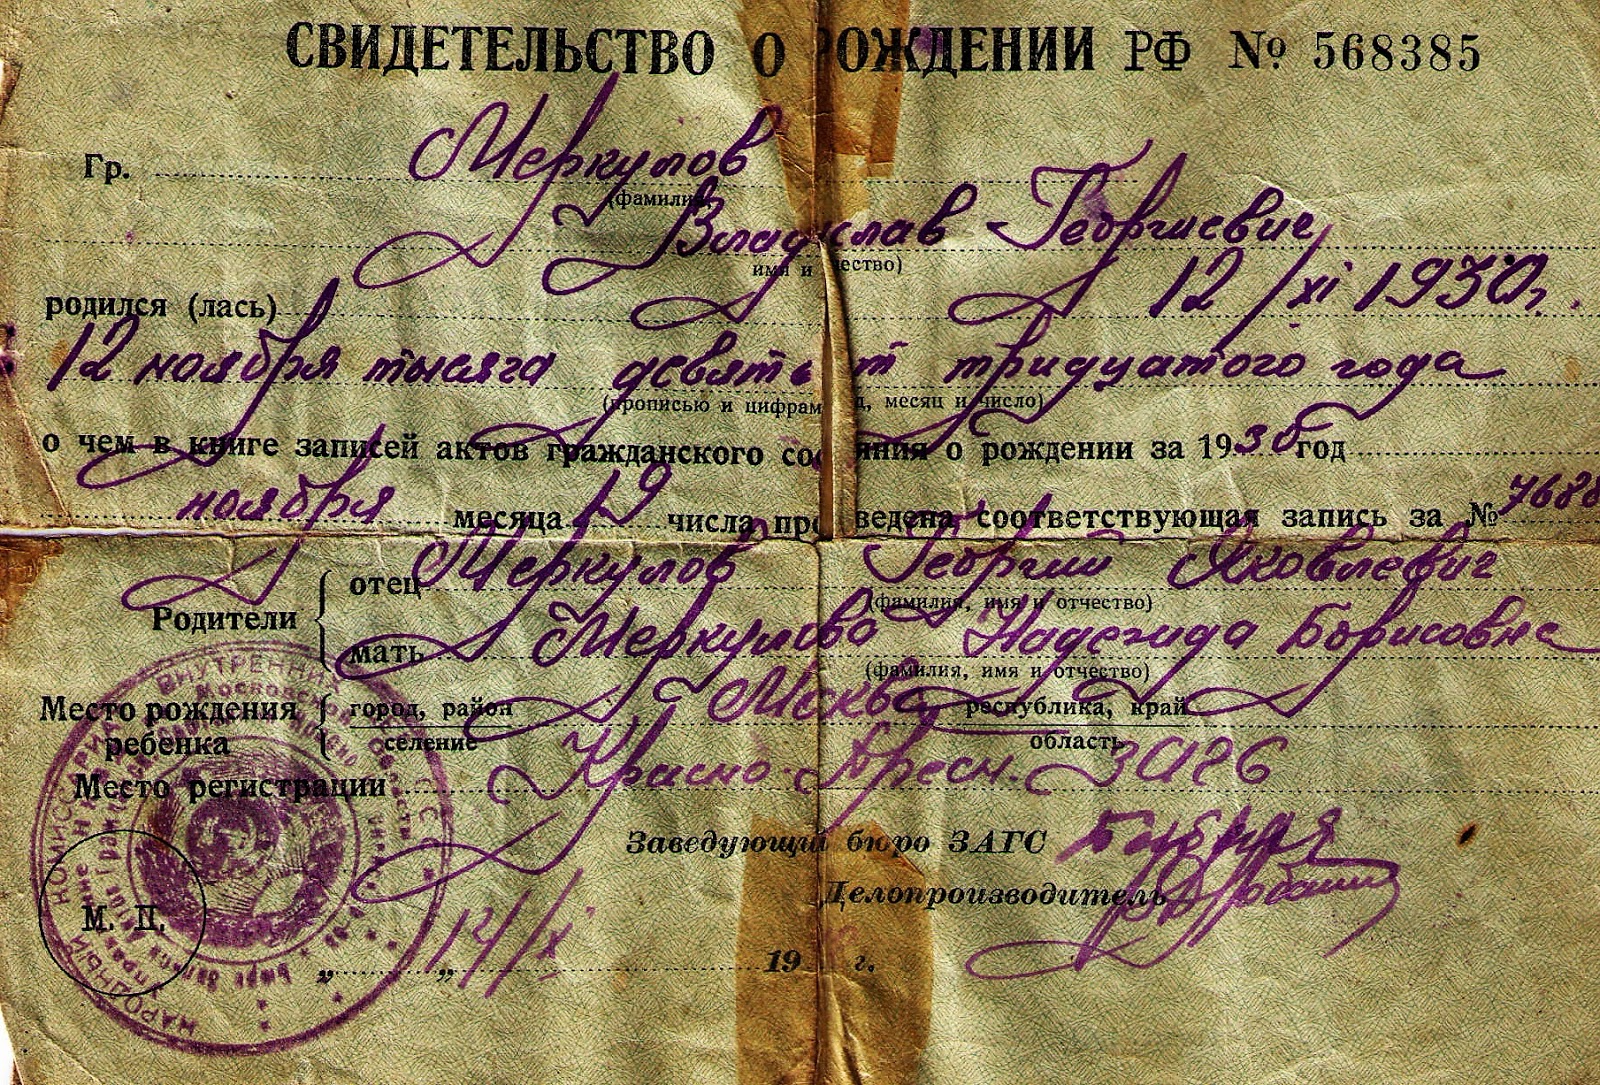 СВИДЕТЕЛЬСТВО О РОЖДЕНИИ РФ № 568385
Гр. Меркулов
(фамилия)
Владислав Георгиевич
имя и чество)
родился (лась) 12/XI 1930г.
12 ноября тысяча девятьс т тридцатого года
(прописью и цифрам д, месяц и число)
о чем в книге записей актов гражданского сос яния о рождении за 1930 год
ноября месяца 19 числа про ведена соответствующая запись за № 7688
Родители
отец Меркулов Георгий Яковлевич
(фамилия, имя и отчество)
мать Меркулова Надежда Борисовна
(фамилия, имя и отчество)
Место рождения ребенка
город, район Москва республика, край
селение область
Место регистрации Красно-Пресн. ЗАГС
Заведующий бюро ЗАГС
Делопроизводитель
М. П.
„ 14/X „ 19 г.
НАРОДНЫЙ КОМИССАРИАТ ВНУТРЕННИХ